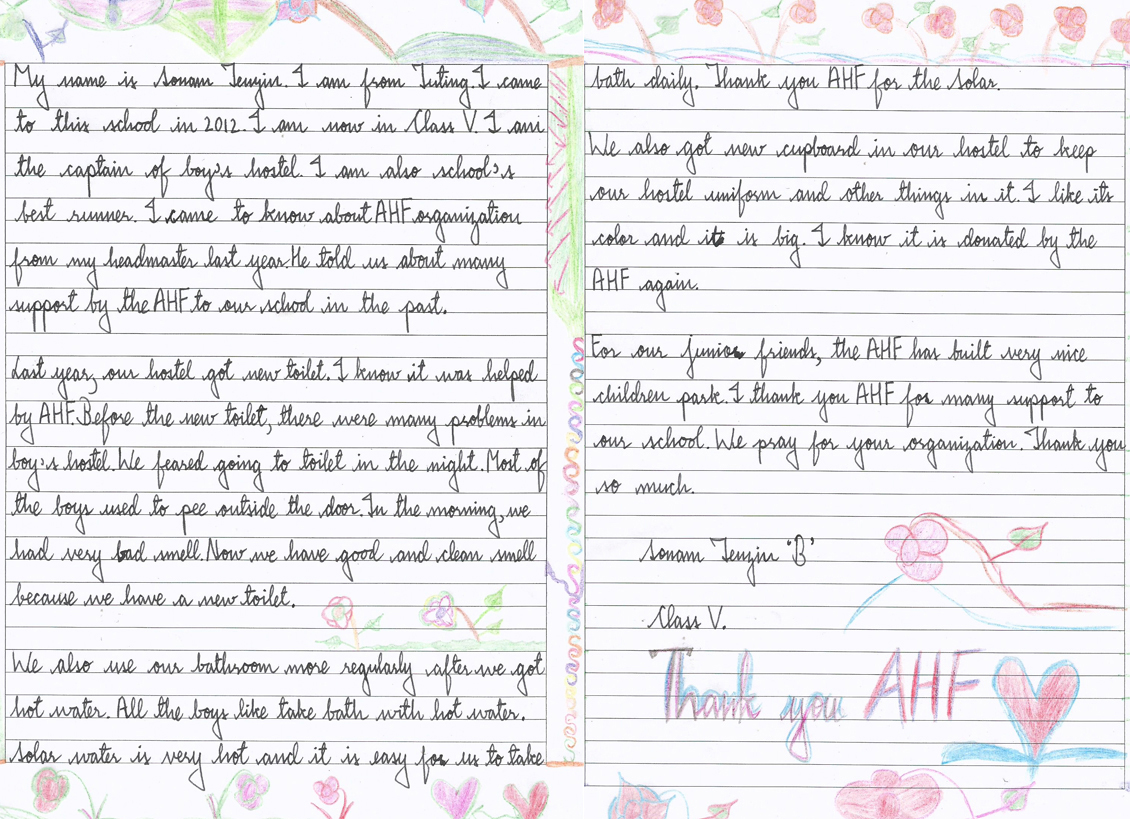 My name is Sonam Tenzin. I am from Tuting. I came
to this school in 2012. I am now in Class V. I am
the captain of boy's hostel. I am also school's
best runner. I came to know about AHF organization
from my headmaster last year. He told us about many
support by the AHF to our school in the past.
Last year, our hostel got new toilet. I know it was helped
by AHF. Before the new toilet, there were many problems in
boy's hostel. We feared going to toilet in the night. Most of
the boys used to pee outside the door. In the morning, we
had very bad smell. Now we have good and clean smell
because we have a new toilet.
We also use our bathroom more regularly after we got
hot water. All the boys like take bath with hot water.
Solar water is very hot and it is easy for us to take
bath daily. Thank you AHF for the solar.
We also got new cupboard in our hostel to keep
our hostel uniform and other things in it. I like its
color and it is big. I know it is donated by the
AHF again.
For our junior friends, the AHF has built very nice
children park. I thank you AHF for many support to
our school. We pray for your organization. Thank you
so much.
Sonam Tenzin 'B'
Class V.
Thank you AHF